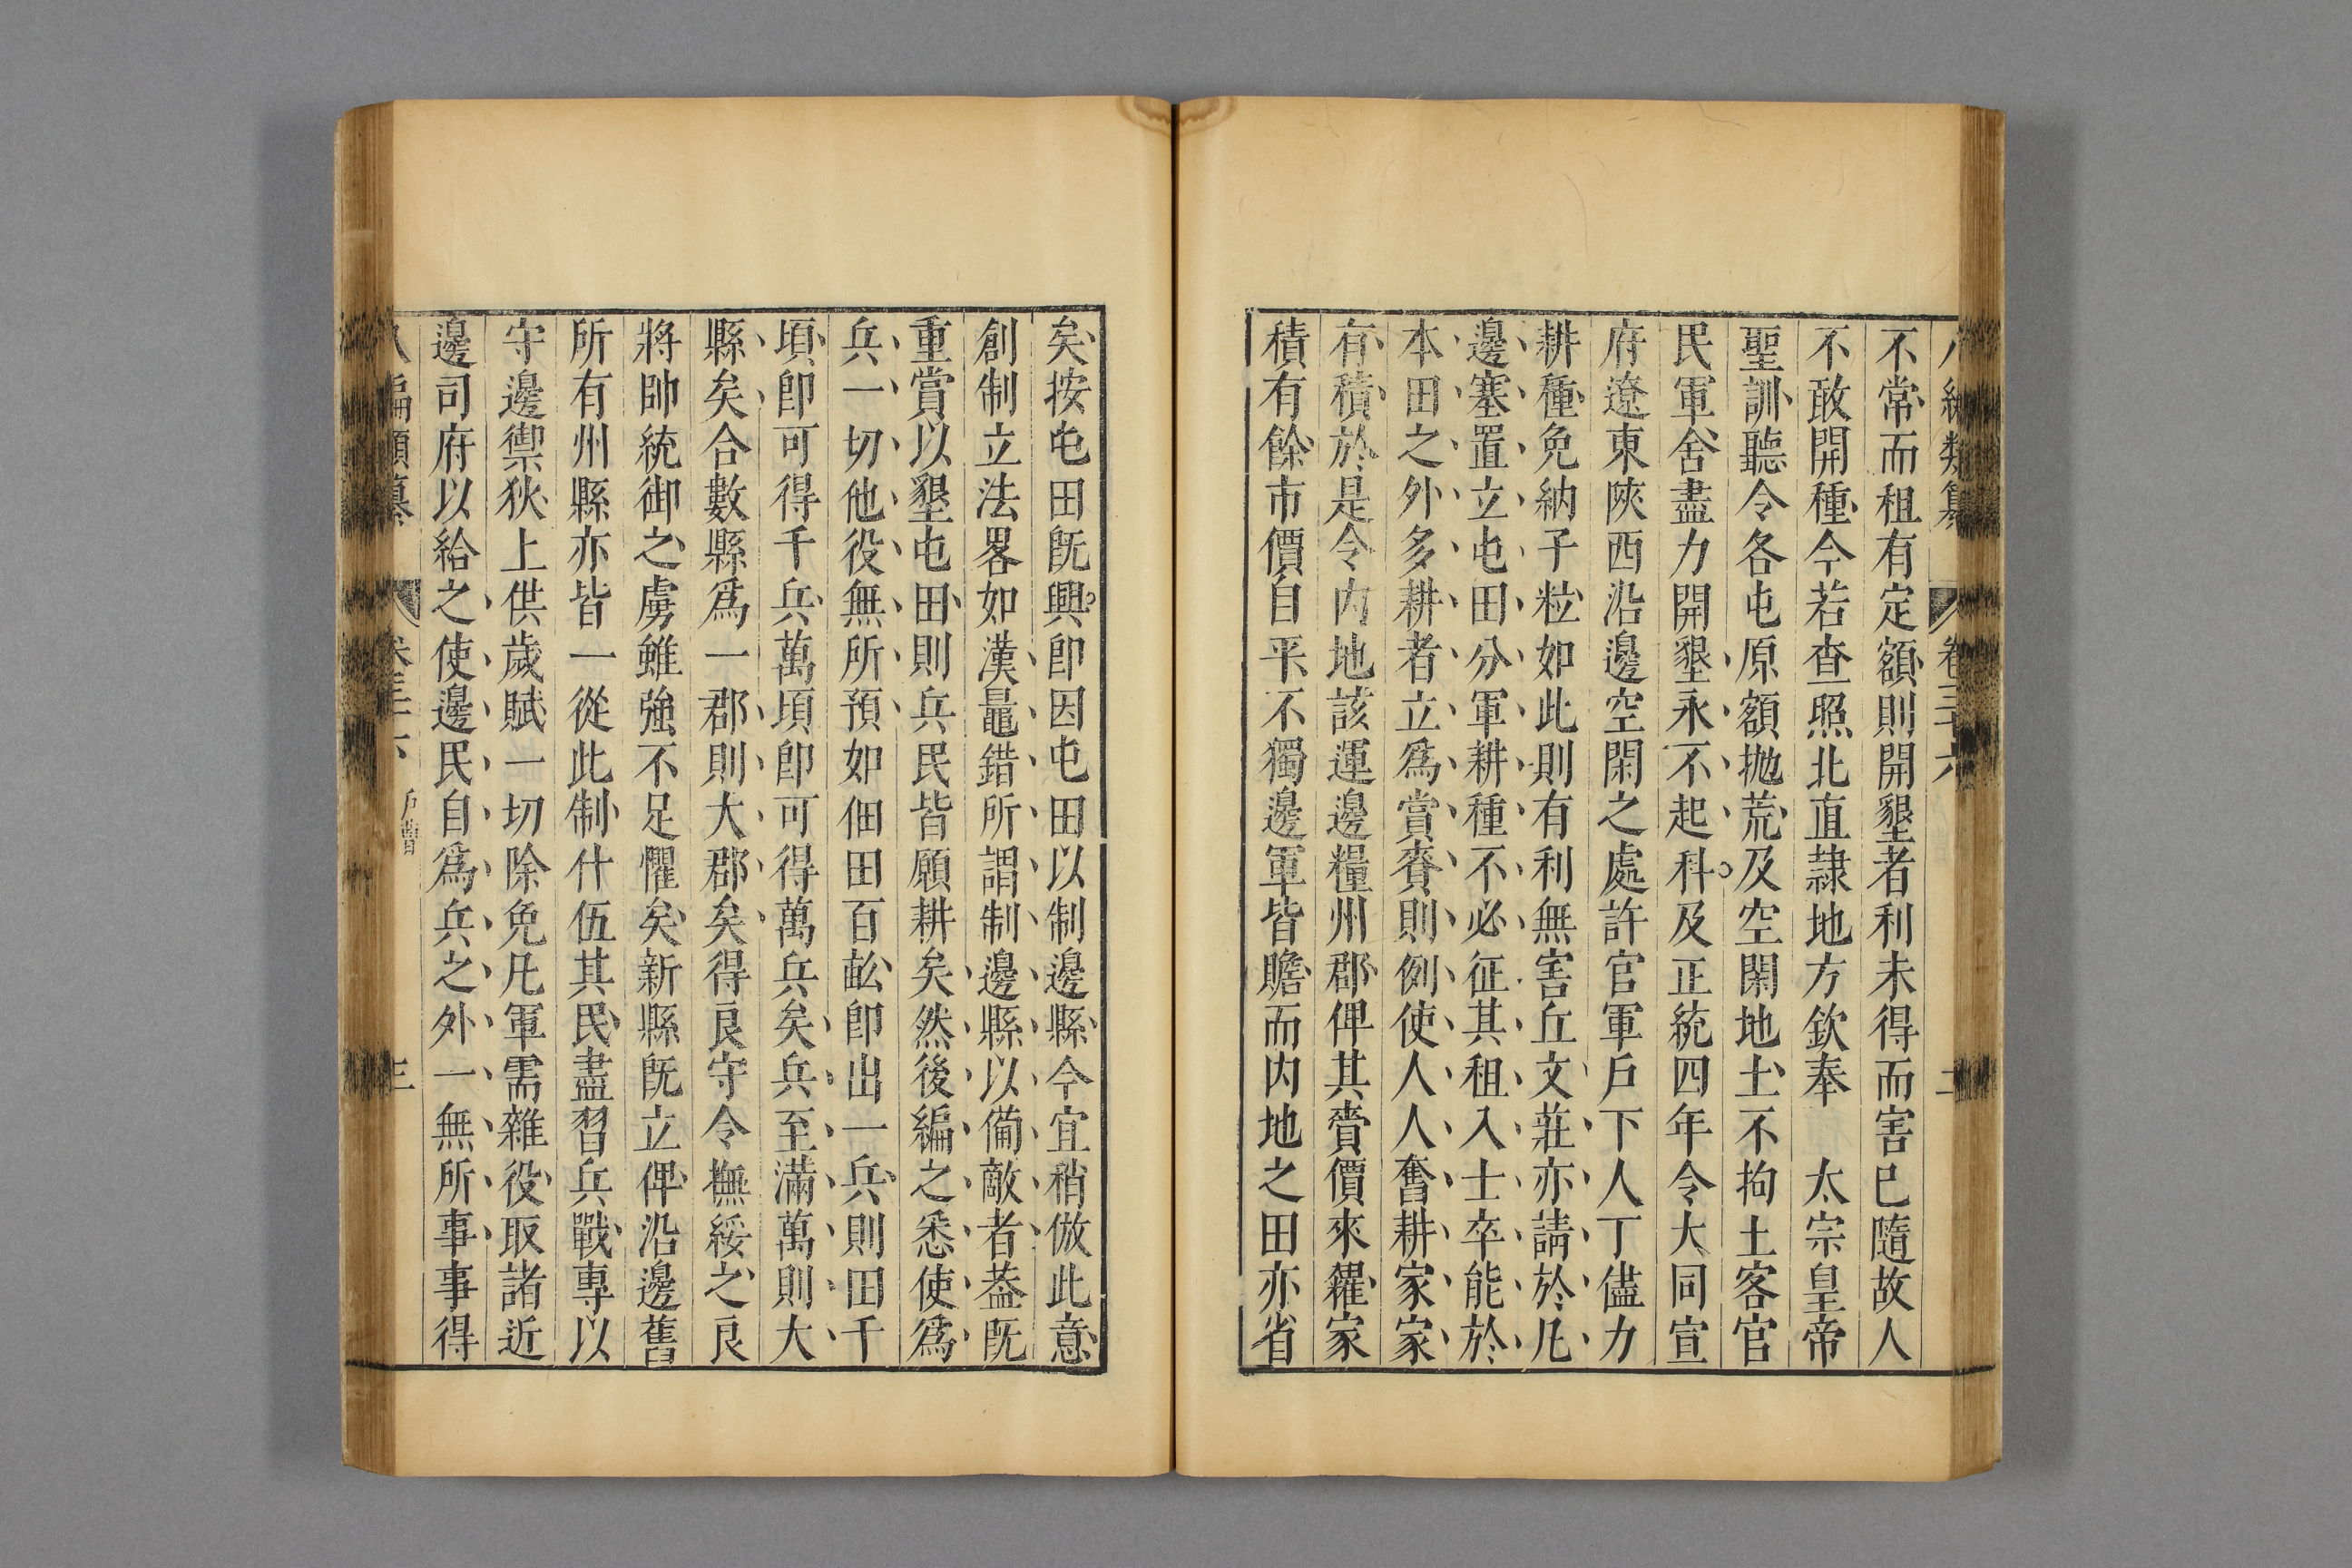 編類纂 卷三十六 二
不常而租有定額則開墾者利未得而害已隨故人
不敢開種今若查照北直隸地方欽奉 太宗皇帝
聖訓聽令各屯原額拋荒及空閑地土不拘土客官
民軍舍盡力開墾永不起科及正統四年令大同宣
府遼東陝西沿邊空閑之處許官軍戶下人丁儘力
耕種免納子粒如此則有利無害丘文莊亦請於凡
邊塞置立屯田分軍耕種不必征其租入士卒能於
本田之外多耕者立爲賞賚則例使人人奮耕家家
有積於是令內地該運邊糧州郡俾其賫價來糴家
積有餘市價自平不獨邊軍皆贍而內地之田亦省
矣按屯田旣興卽因屯田以制邊縣今宜稍倣此意
創制立法畧如漢鼂錯所謂制邊縣以備敵者葢旣
重賞以墾屯田則兵民皆願耕矣然後編之悉使爲
兵一切他役無所預如佃田百畝卽出一兵則田千
頃卽可得千兵萬頃卽可得萬兵矣兵至滿萬則大
縣矣合數縣爲一郡則大郡矣得良守令撫綏之良
將帥統御之虜雖強不足懼矣新縣旣立俾沿邊舊
所有州縣亦皆一從此制什伍其民盡習兵戰專以
守邊禦狄上供歲賦一切除免凡軍需雜役取諸近
邊司府以給之使邊民自爲兵之外一無所事事得
編類纂 卷三十六 戶曹 三